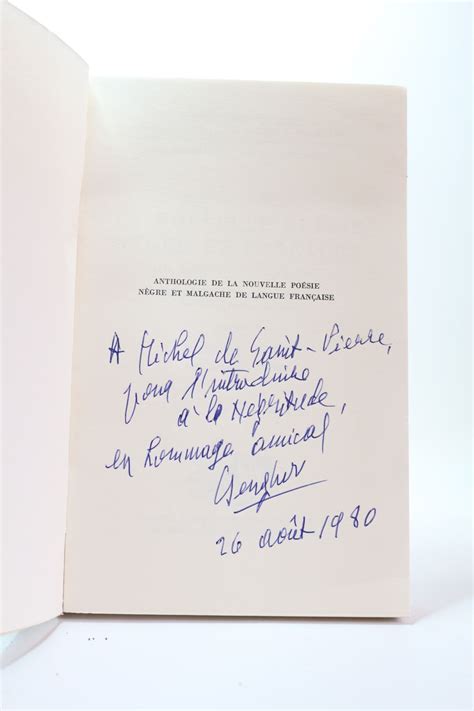 ANTHOLOGIE DE LA NOUVELLE POÉSIE
NÈGRE ET MALGACHE DE LANGUE FRANÇAISE
A Michel de Saint-Pierre,
pour l'introduire
à la Négritude,
en hommage amical
LSenghor
26 août 1980